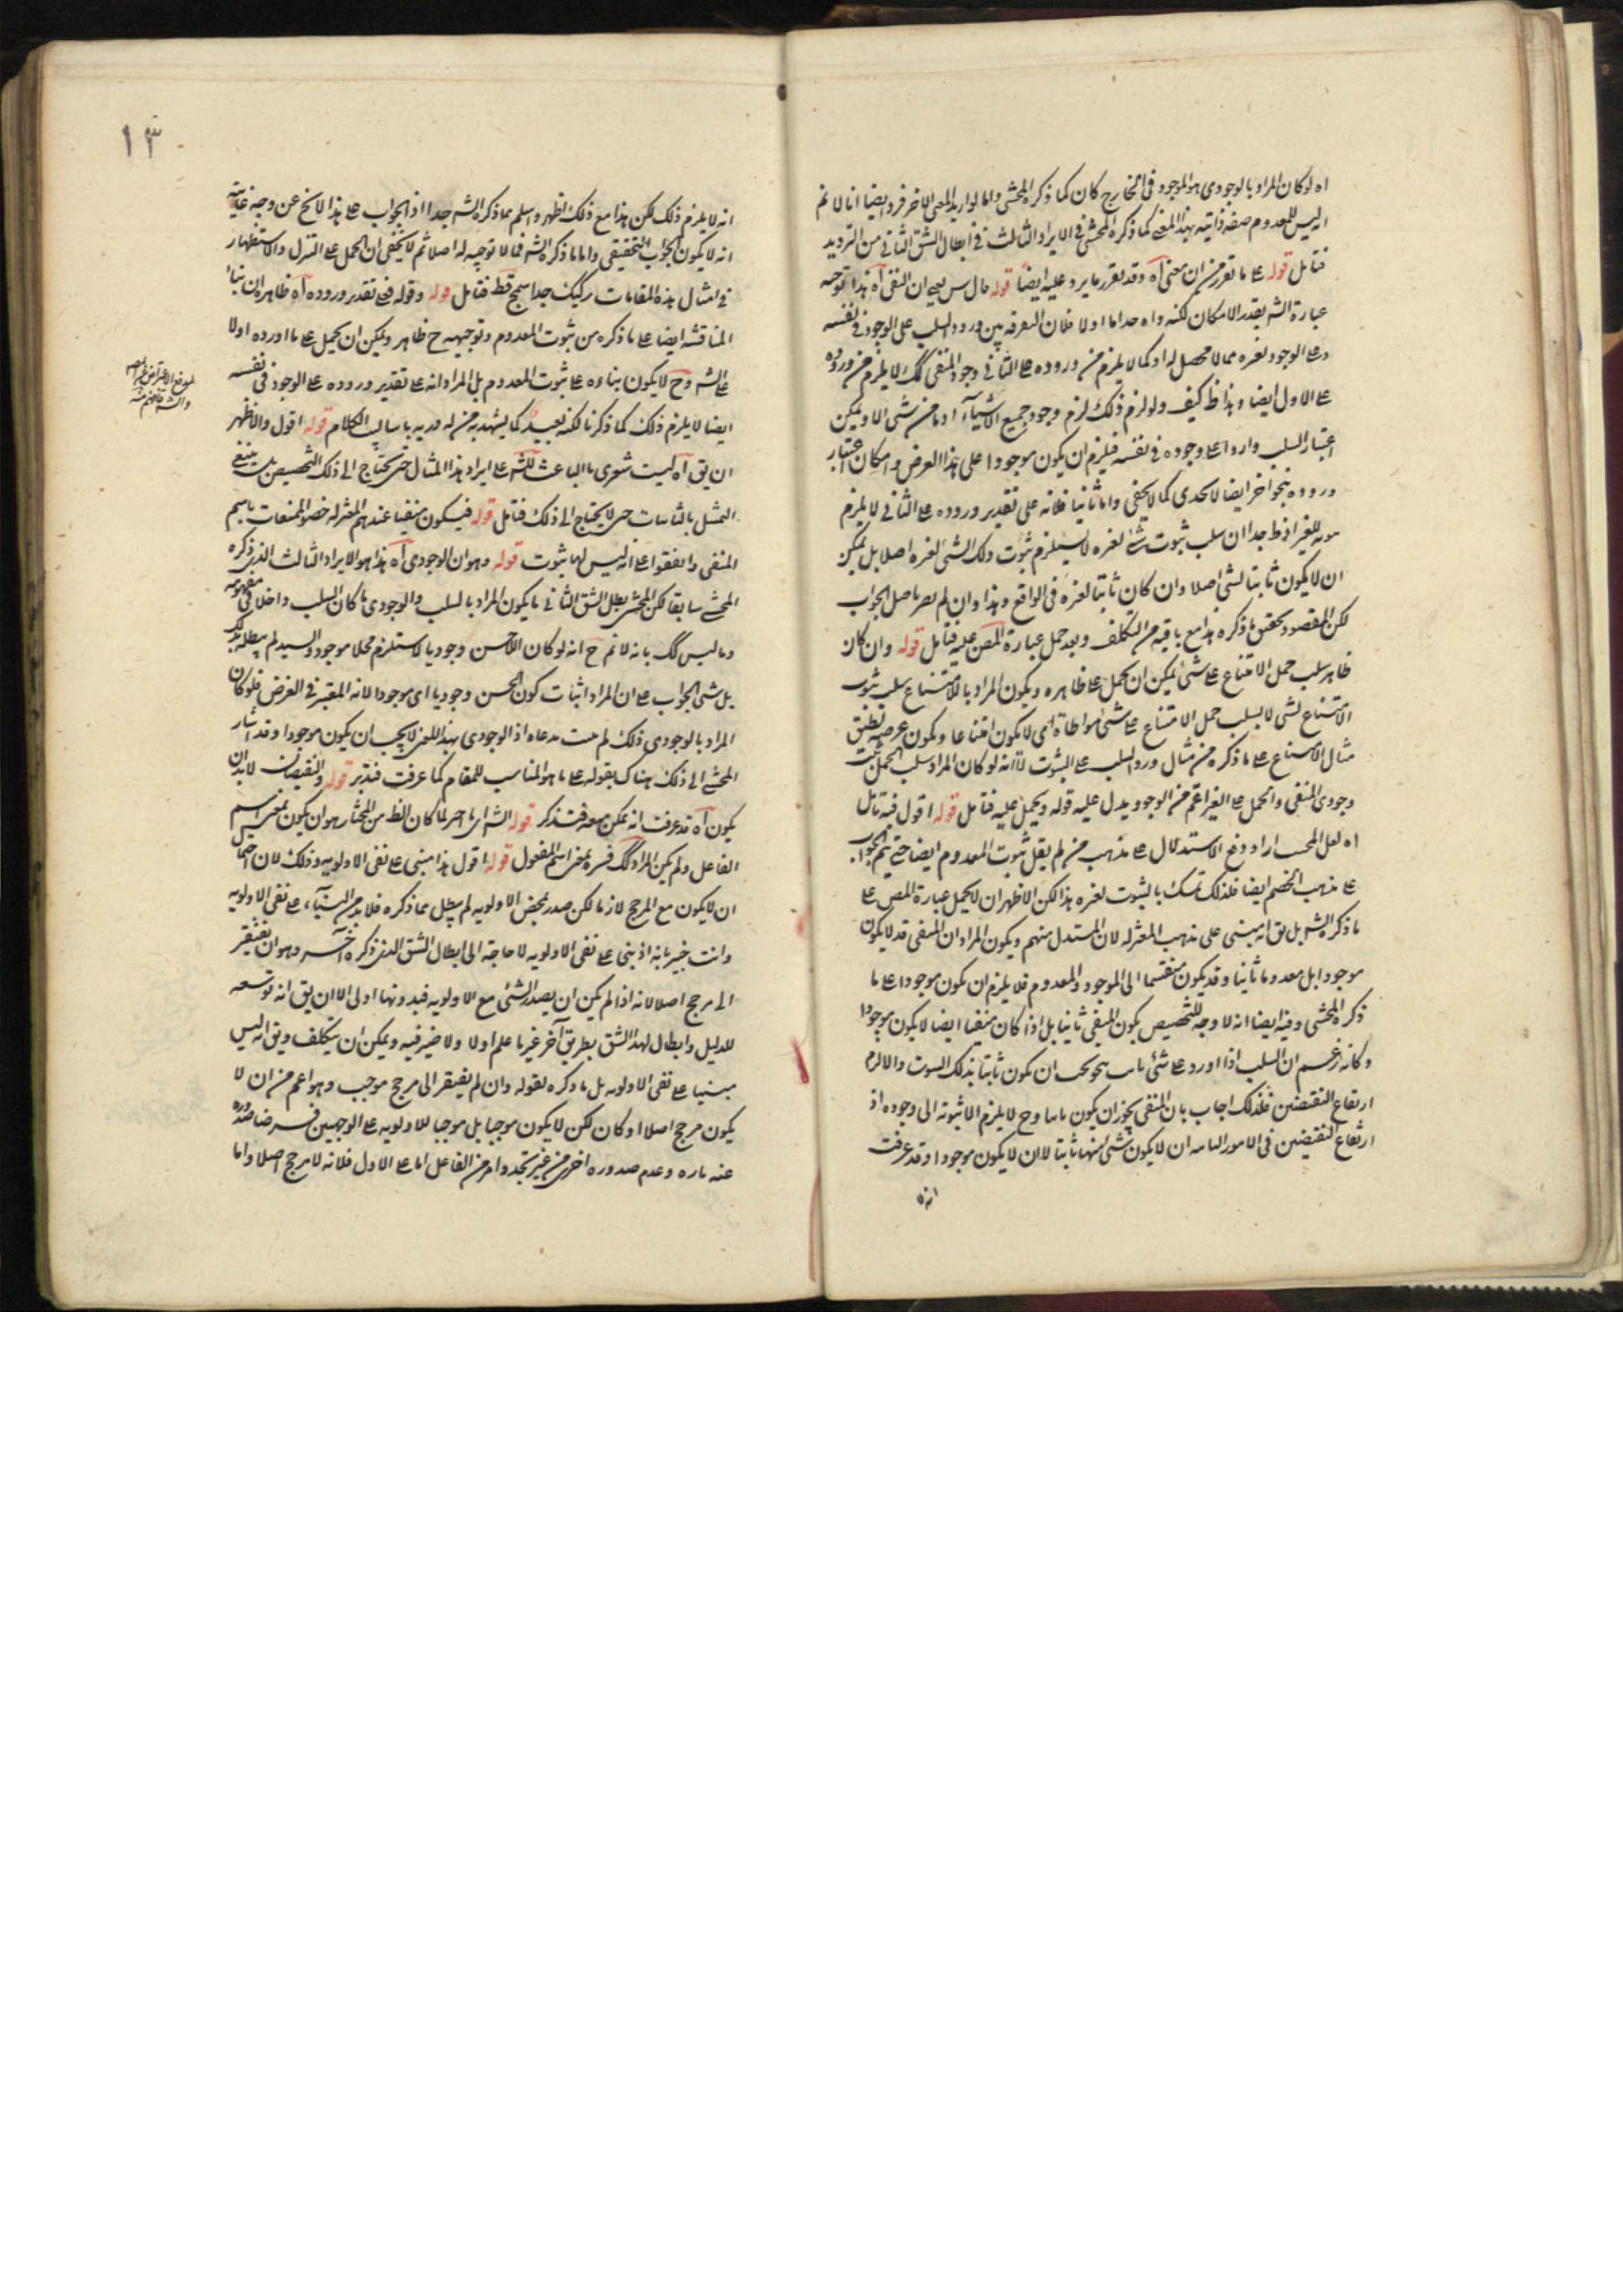 اه لو كان المراد بالوجودى هو الموجود فى الخارج كان كما ذكره المحشى واما لو اريد المعنى الاخر فر ايضا انا لا نم
انه ليس للمعدوم صفة ذاتية بهذا المعنى كما ذكره المحشى فى الايراد الثالث فى ابطال الشق الثانى من الترديد
فتامل قوله على ما تقرر من ان معنى آه وقد تقرر ما يرد عليه ايضا قوله ان النفى آه هذا توجيه
عبارة الشه بقدر الامكان لكنه واه جدا اما اولا فلان التفرقة بين ورود السلب على الوجود فى نفسه
وعلى الوجود لغيره مما لا محصل له اذ كما لا يلزم من وروده على الثانى وجود المنفى كك لا يلزم من وروده
على الاول ايضا وهذا ظ كيف ولو لزم ذلك لزم وجود جميع الاشياء اذ ما من شىء الا ويمكن
اعتبار السلب واردا على وجوده فى نفسه فيلزم ان يكون موجودا على هذا الفرض وامكان اعتبار
وروده بنحو اخر ايضا لا يجدى كما لا يخفى واما ثانيا فلانه على تقدير وروده على الثانى لا يلزم
للغير اذ ظ جدا ان سلب ثبوت شىء لغيره لا يستلزم ثبوت ذلك الشىء لغيره اصلا بل يمكن
ان لا يكون ثابتا لشىء اصلا وان كان ثابتا لغيره فى الواقع وهذا وان لم يضر باصل الجواب
لكن المقصود تحقيق ما ذكره هذا مع ما فيه من التكلف وبعد حمل عبارة المص عليه فتامل قوله وان كان
ظاهر سلب حمل الامتناع على شىء يمكن ان يحمل على ظاهره ويكون المراد بالامتناع سلب ثبوت
الامتناع لشىء لا سلب حمل الامتناع على شىء مواطاة اى لا يكون امتناعا ويكون غرضه تطبيق
مثال الامتناع على ما ذكره من مثال ورود السلب على الثبوت لا انه لو كان المراد سلب الحمل
وجودى المنفى والحمل على الغير اعم من الوجود يدل عليه قوله ويحمل عليه فتامل قوله اقول فيه تامل
اه لعل المجيب اراد دفع الاستدلال على مذهب من لم يقل بثبوت المعدوم ايضا حتى يتم الجواب
على مذهب الخصم ايضا فلذلك تمسك بالثبوت لغيره هذا لكن الاظهر ان لا يحمل عبارة المص على
ما ذكره الشه بل يق انه مبنى على مذهب المعتزلة لان المستدل منهم ويكون المراد ان المنفى قد لا يكون
موجودا بل معدوما ثابتا وقد يكون منقسما الى الموجود والمعدوم فلا يلزم ان يكون موجودا على ما
ذكره المحشى وفيه ايضا انه لا وجه لتخصيص كون المنفى ثابتا بل اذا كان منفيا ايضا لا يكون موجودا
وكانه زعم ان السلب اذا اورد على شىء يجب ان يكون ثابتا بذلك الثبوت والا لزم
ارتفاع النقيضين فلذلك اجاب بان المنفى يجوز ان يكون ثابتا وح لا يلزم الا ثبوته لا وجوده اذ
ارتفاع النقيضين فى الامور الثابتة ان لا يكون شىء منهما ثابتا لا ان لا يكون موجودا وقد عرفت
انه
١٣
انه لا يلزم ذلك لكن هذا مع ذلك اظهر واسلم مما ذكره الشه جدا اذ الجواب على هذا لا يخ عن وجه غايته
انه لا يكون الجواب التحقيقى واما ما ذكره الشه فمما لا توجيه له اصلا ثم لا يخفى ان الحمل على التنزل والاستظهار
فى امثال هذه المقامات ركيك جدا سمج قط فتامل قوله وقوله فعلى تقدير وروده آه ظاهره ان بناء
المناقشة ايضا على ما ذكره من ثبوت المعدوم وتوجيهه ح ظاهر ويمكن ان يحمل على ما اورده اولا
على الشه وح لا يكون بناءه على ثبوت المعدوم بل المراد انه على تقدير وروده على الوجود فى نفسه
ايضا لا يلزم ذلك كما ذكرنا لكنه بعيد كما يشهد به من له دربة باساليب الكلام قوله اقول والاظهر
ان يق آه ليت شعرى ما الباعث للشه على ايراد هذا المثال حتى يحتاج الى ذلك التخصيص بل ينبغى
التمثيل بالثابتات حتى لا يحتاج الى ذلك فتامل قوله فيكون منفيا عندهم المعتزلة خصوا الممتنعات باسم
المنفى واتفقوا على انه ليس لها ثبوت قوله وهو ان الوجودى آه هذا هو الايراد الثالث الذى ذكره
المحشى سابقا لكن المحشى يبطل الشق الثانى ما يكون المراد بالسلب والوجودى ما كان السلب داخلا فى مفهومه
وما ليس كك بانه لا نم ح انه لو كان الاحسن وجوديا لاستلزم محلا موجودا والسيد لم يبطله بذلك
بل بنى الجواب على ان المراد اثبات كون الحسن وجوديا اى موجودا لانه المعتبر فى الغرض فلو كان
المراد بالوجودى ذلك لم يثبت مدعاه اذ الوجودى بهذا المعنى لا يجب ان يكون موجودا وقد اشار
المحشى الى ذلك هناك بقوله على ما هو المناسب للمقام كما عرفت فتدبر قوله والنقيضان لا بد ان
يكون آه قد عرفت انه يمكن منعه فتذكر قوله الشه لما كان الظ من المختار هو ان يكون بمعنى اسم
الفاعل ولم يكن المراد كك فسره بمعنى اسم المفعول قوله اقول هذا مبنى على نفى الاولوية وذلك لان احتمال
ان لا يكون مع المرجح لازما لكن صدر بمحض الاولوية لم يبطل بما ذكره فلا بد من البناء على نفى الاولوية
وانت خبير بانه اذ بنى على نفى الاولوية لا حاجة الى ابطال الشق الذى ذكره آخر وهو ان يفتقر
الى مرجح اصلا لانه اذا لم يكن ان يصدر الشىء مع الاولوية فبدونها اولى الا ان يق انه توسعة
للدليل وابطال لهذا الشق بطريق آخر غير ما علم اولا ولا ضير فيه ويمكن ان يتكلف ويق انه ليس
مبنيا على نفى الاولوية بل ما ذكره بقوله وان لم يفتقر الى مرجح موجب وهو اعم من ان لا
يكون مرجح اصلا او كان لكن لا يكون موجبا بل موجبا للاولوية على الوجهين فرضنا صدوره
عنه تارة وعدم صدوره اخرى من غير تجدد امر من الفاعل اما على الاول فلانه لا مرجح اصلا واما